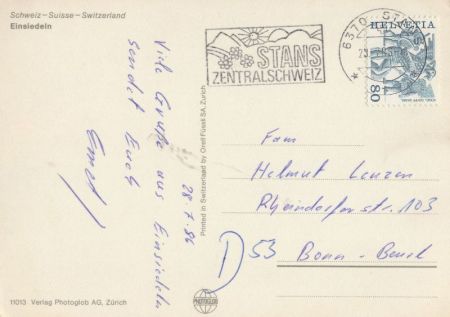 Schweiz-Suisse-Switzerland
Einsiedeln
STANS
ZENTRALSCHWEIZ
6370 STANS
HELVETIA
80
28.7.86
Viele Grüße aus Einsiedeln
sendet Euch
Ernst
Printed in Switzerland by Orell Füssli SA, Zürich
Fam.
Helmut Lenzen
Rheindorferstr. 103
D 53 Bonn-Beuel
11013 Verlag Photoglob AG, Zürich
PHOTOGLOB